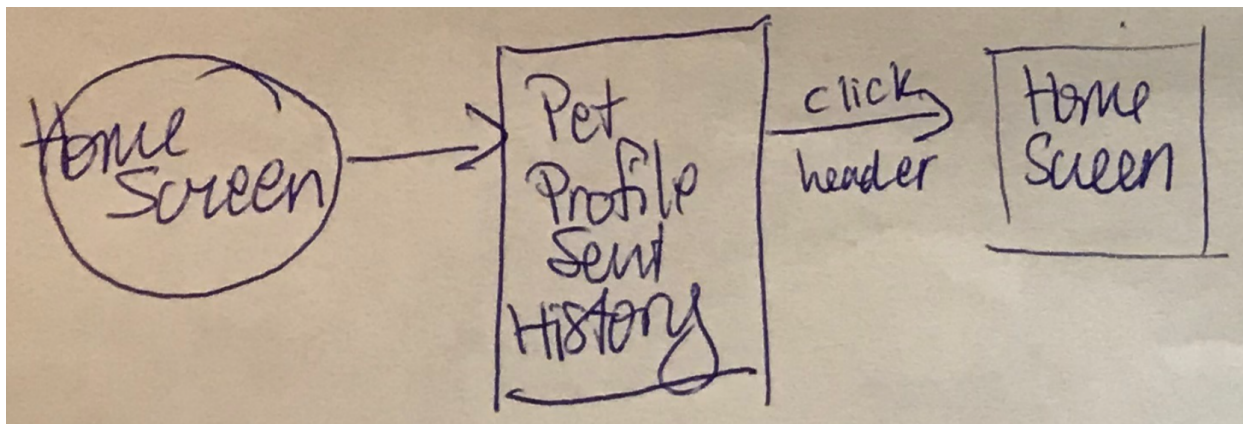 Home
Screen
Pet
Profile
Sent
History
click
header
Home
Screen